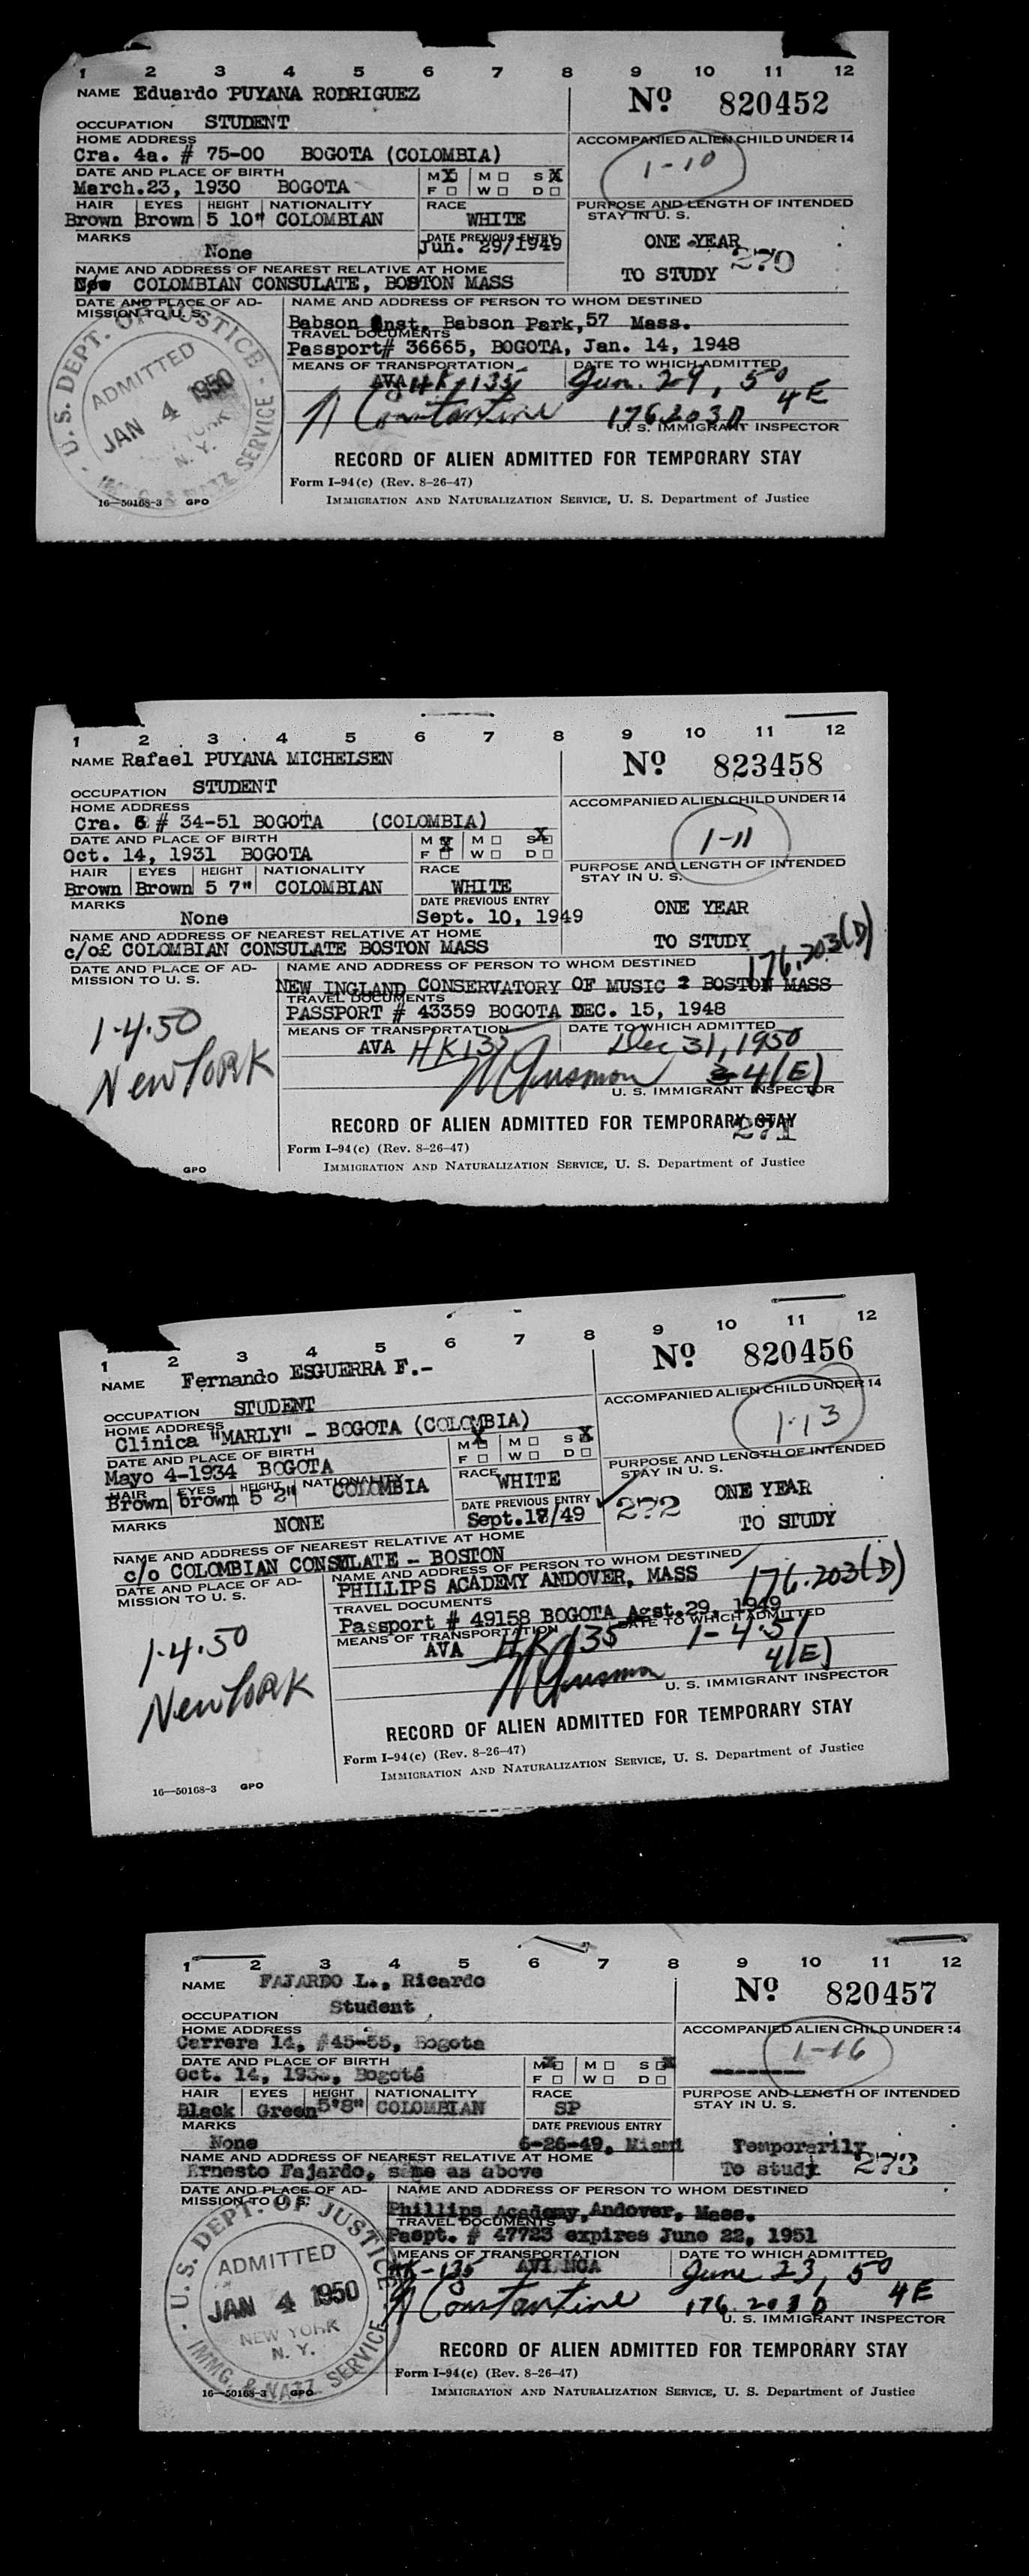 1 2 3 4 5 6 7 8 9 10 11 12
NAME Eduardo PUYANA RODRIGUEZ
No 820452
OCCUPATION STUDENT
HOME ADDRESS
Cra. 4a. # 75-00 BOGOTA (COLOMBIA)
ACCOMPANIED ALIEN CHILD UNDER 14
1-10
DATE AND PLACE OF BIRTH
March.23, 1930 BOGOTA
M X M S X
F W D
HAIR EYES HEIGHT NATIONALITY RACE
Brown Brown 5 10" COLOMBIAN WHITE
PURPOSE AND LENGTH OF INTENDED
STAY IN U. S.
MARKS None
DATE PREVIOUS ENTRY
Jun. 29/1949
ONE YEAR
270
TO STUDY
NAME AND ADDRESS OF NEAREST RELATIVE AT HOME
COLOMBIAN CONSULATE, BOSTON MASS
DATE AND PLACE OF AD-
MISSION TO U. S.
NAME AND ADDRESS OF PERSON TO WHOM DESTINED
Babson Inst. Babson Park,57 Mass.
TRAVEL DOCUMENTS
Passport# 36665, BOGOTA, Jan. 14, 1948
MEANS OF TRANSPORTATION DATE TO WHICH ADMITTED
AVA HK-135 Jun. 29, 50
4E
N Constantine 176.203D
U. S. IMMIGRANT INSPECTOR
U. S. DEPT. OF JUSTICE
ADMITTED
JAN 4 1950
NEW YORK
N. Y.
IMMG. & NATZ. SERVICE
RECORD OF ALIEN ADMITTED FOR TEMPORARY STAY
Form I-94(c) (Rev. 8-26-47)
16—50168-3 GPO
IMMIGRATION AND NATURALIZATION SERVICE, U. S. Department of Justice
1 2 3 4 5 6 7 8 9 10 11 12
NAME Rafael PUYANA MICHELSEN
No 823458
OCCUPATION STUDENT
HOME ADDRESS
Cra. 6 # 34-51 BOGOTA (COLOMBIA)
ACCOMPANIED ALIEN CHILD UNDER 14
1-11
DATE AND PLACE OF BIRTH
Oct. 14, 1931 BOGOTA
M X M S X
F W D
HAIR EYES HEIGHT NATIONALITY RACE
Brown Brown 5 7" COLOMBIAN WHITE
PURPOSE AND LENGTH OF INTENDED
STAY IN U. S.
MARKS None
DATE PREVIOUS ENTRY
Sept. 10, 1949
ONE YEAR
TO STUDY
NAME AND ADDRESS OF NEAREST RELATIVE AT HOME
c/o£ COLOMBIAN CONSULATE BOSTON MASS
176.203(D)
DATE AND PLACE OF AD-
MISSION TO U. S.
NAME AND ADDRESS OF PERSON TO WHOM DESTINED
NEW INGLAND CONSERVATORY OF MUSIC 2 BOSTON MASS
TRAVEL DOCUMENTS
PASSPORT # 43359 BOGOTA DEC. 15, 1948
MEANS OF TRANSPORTATION DATE TO WHICH ADMITTED
AVA HK135 Dec 31, 1950
1-4-50
New York
4(E)
U. S. IMMIGRANT INSPECTOR
RECORD OF ALIEN ADMITTED FOR TEMPORARY STAY
271
Form I-94(c) (Rev. 8-26-47)
GPO
IMMIGRATION AND NATURALIZATION SERVICE, U. S. Department of Justice
1 2 3 4 5 6 7 8 9 10 11 12
NAME Fernando ESGUERRA F.-
No 820456
OCCUPATION STUDENT
HOME ADDRESS
Clinica "MARLY" - BOGOTA (COLOMBIA)
ACCOMPANIED ALIEN CHILD UNDER 14
1-13
DATE AND PLACE OF BIRTH
Mayo 4-1934 BOGOTA
M X M S X
F W D
HAIR EYES HEIGHT NATIONALITY RACE
Brown brown 5 2" COLOMBIA WHITE
PURPOSE AND LENGTH OF INTENDED
STAY IN U. S.
MARKS NONE
DATE PREVIOUS ENTRY
Sept.18/49
272
ONE YEAR
TO STUDY
NAME AND ADDRESS OF NEAREST RELATIVE AT HOME
c/o COLOMBIAN CONSULATE - BOSTON
DATE AND PLACE OF AD-
MISSION TO U. S.
NAME AND ADDRESS OF PERSON TO WHOM DESTINED
PHILLIPS ACADEMY ANDOVER, MASS
176.203(D)
TRAVEL DOCUMENTS
Passport # 49158 BOGOTA Agst.29, 1949
MEANS OF TRANSPORTATION DATE TO WHICH ADMITTED
AVA HK135 1-4-51
1-4-50
New York
4(E)
U. S. IMMIGRANT INSPECTOR
RECORD OF ALIEN ADMITTED FOR TEMPORARY STAY
Form I-94(c) (Rev. 8-26-47)
16—50168-3 GPO
IMMIGRATION AND NATURALIZATION SERVICE, U. S. Department of Justice
1 2 3 4 5 6 7 8 9 10 11 12
NAME FAJARDO L., Ricardo
No 820457
OCCUPATION Student
HOME ADDRESS
Carrera 14, #45-55, Bogota
ACCOMPANIED ALIEN CHILD UNDER 14
1-16
DATE AND PLACE OF BIRTH
Oct. 14, Bogotá
M X M S X
F W D
HAIR EYES HEIGHT NATIONALITY RACE
Black Green 5'8" COLOMBIAN SP
PURPOSE AND LENGTH OF INTENDED
STAY IN U. S.
MARKS None
DATE PREVIOUS ENTRY
6-26-49, Miami
Temporarily
To study
273
NAME AND ADDRESS OF NEAREST RELATIVE AT HOME
Ernesto Fajardo, same as above
DATE AND PLACE OF AD-
MISSION TO U. S.
NAME AND ADDRESS OF PERSON TO WHOM DESTINED
Phillips Academy, Andover, Mass.
TRAVEL DOCUMENTS
Paspt. # 47723 expires June 22, 1951
MEANS OF TRANSPORTATION DATE TO WHICH ADMITTED
HK-135 AVIANCA June 23, 50
4E
N Constantine 176.203D
U. S. IMMIGRANT INSPECTOR
U. S. DEPT. OF JUSTICE
ADMITTED
JAN 4 1950
NEW YORK
N. Y.
IMMG. & NATZ. SERVICE
RECORD OF ALIEN ADMITTED FOR TEMPORARY STAY
Form I-94(c) (Rev. 8-26-47)
16—50168-3 GPO
IMMIGRATION AND NATURALIZATION SERVICE, U. S. Department of Justice